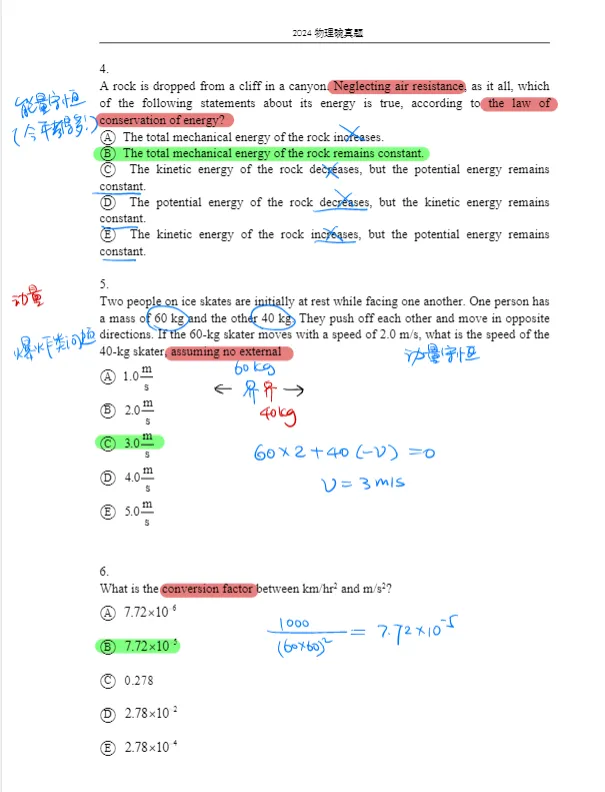 2024 物理碗真题
4.
A rock is dropped from a cliff in a canyon. Neglecting air resistance, as it all, which
of the following statements about its energy is true, according to the law of
conservation of energy?
能量守恒
Ⓐ The total mechanical energy of the rock increases.
Ⓑ The total mechanical energy of the rock remains constant.
Ⓒ The kinetic energy of the rock decreases, but the potential energy remains
constant.
Ⓓ The potential energy of the rock decreases, but the kinetic energy remains
constant.
Ⓔ The kinetic energy of the rock increases, but the potential energy remains
constant.
5.
动量
Two people on ice skates are initially at rest while facing one another. One person has
a mass of 60 kg and the other 40 kg. They push off each other and move in opposite
directions. If the 60-kg skater moves with a speed of 2.0 m/s, what is the speed of the
40-kg skater, assuming no external
爆炸类问题
动量守恒
Ⓐ 1.0 m/s
60kg
← →
40kg
Ⓑ 2.0 m/s
Ⓒ 3.0 m/s
60×2+40(-v)=0
Ⓓ 4.0 m/s
v=3m/s
Ⓔ 5.0 m/s
6.
What is the conversion factor between km/hr² and m/s²?
Ⓐ 7.72×10 ⁶
Ⓑ 7.72×10 ⁵
1000/(60×60)² = 7.72×10⁻⁵
Ⓒ 0.278
Ⓓ 2.78×10 ²
Ⓔ 2.78×10 ⁴